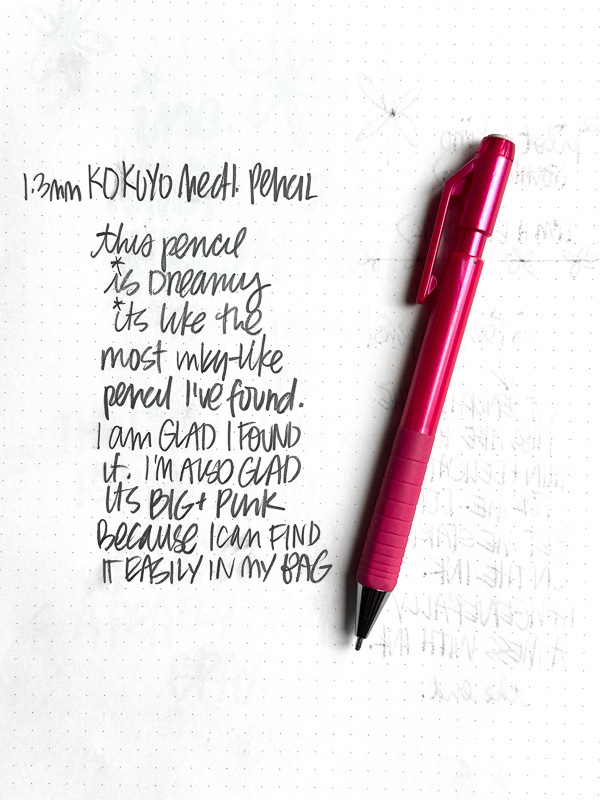 1.3mm KOKUYO Mech. Pencil
this pencil
* is Dreamy
* its like the
most inky-like
pencil I've found.
I am GLAD I FOUND
it. I'M ALSO GLAD
its BIG + PINK
BECAUSE I CAN FIND
IT EASILY IN MY BAG